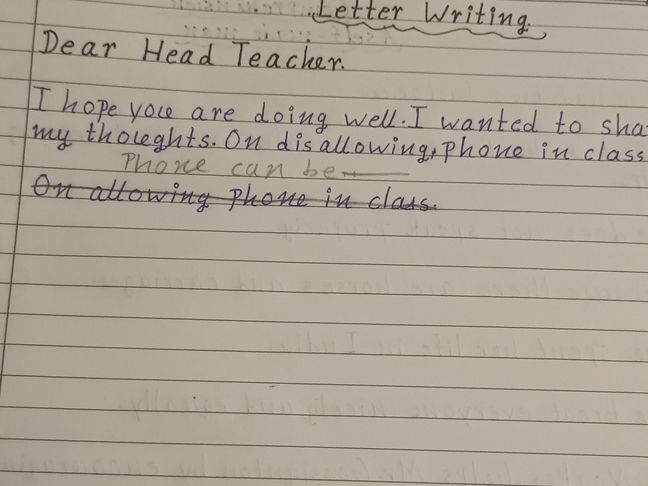 Letter Writing.
Dear Head Teacher.
I hope you are doing well. I wanted to sha
my thoughts. On disallowing, phone in class
Phone can be
On allowing phone in class.